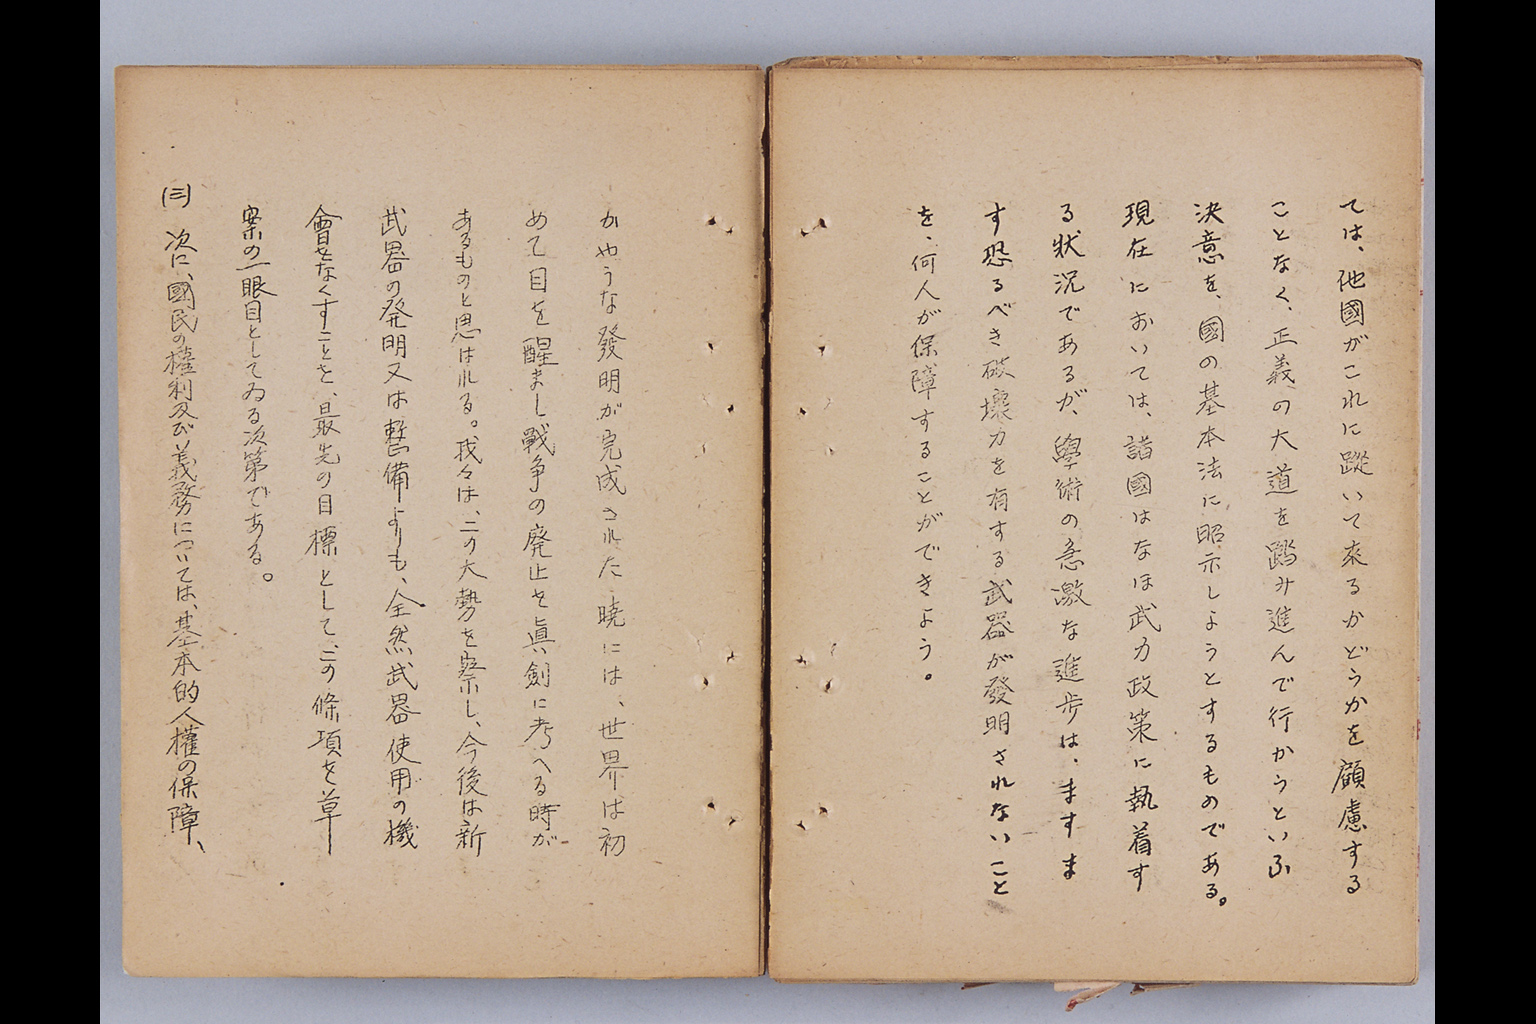 ては、他國がこれに蹤いて來るかどうかを顧慮する
ことなく、正義の大道を踏み進んで行かうといふ
決意を、國の基本法に昭示しようとするものである。
現在においては、諸國はなほ武力政策に執着す
る状況であるが、學術の急激な進歩は、ますま
す恐るべき破壞力を有する武器が發明されないこと
を、何人が保障することができよう。
かやうな發明が完成された曉には、世界は初
めて目を醒まし戰争の廃止を眞劍に考へる時が
あるものと思はれる。我々は、この大勢を察し、今後は新
武器の発明又は整備よりも、全然武器使用の機
會をなくすことを、最先の目標として、この條項を草
案の一眼目としてゐる次第である。
(三) 次に、國民の権利及び義務については、基本的人權の保障、